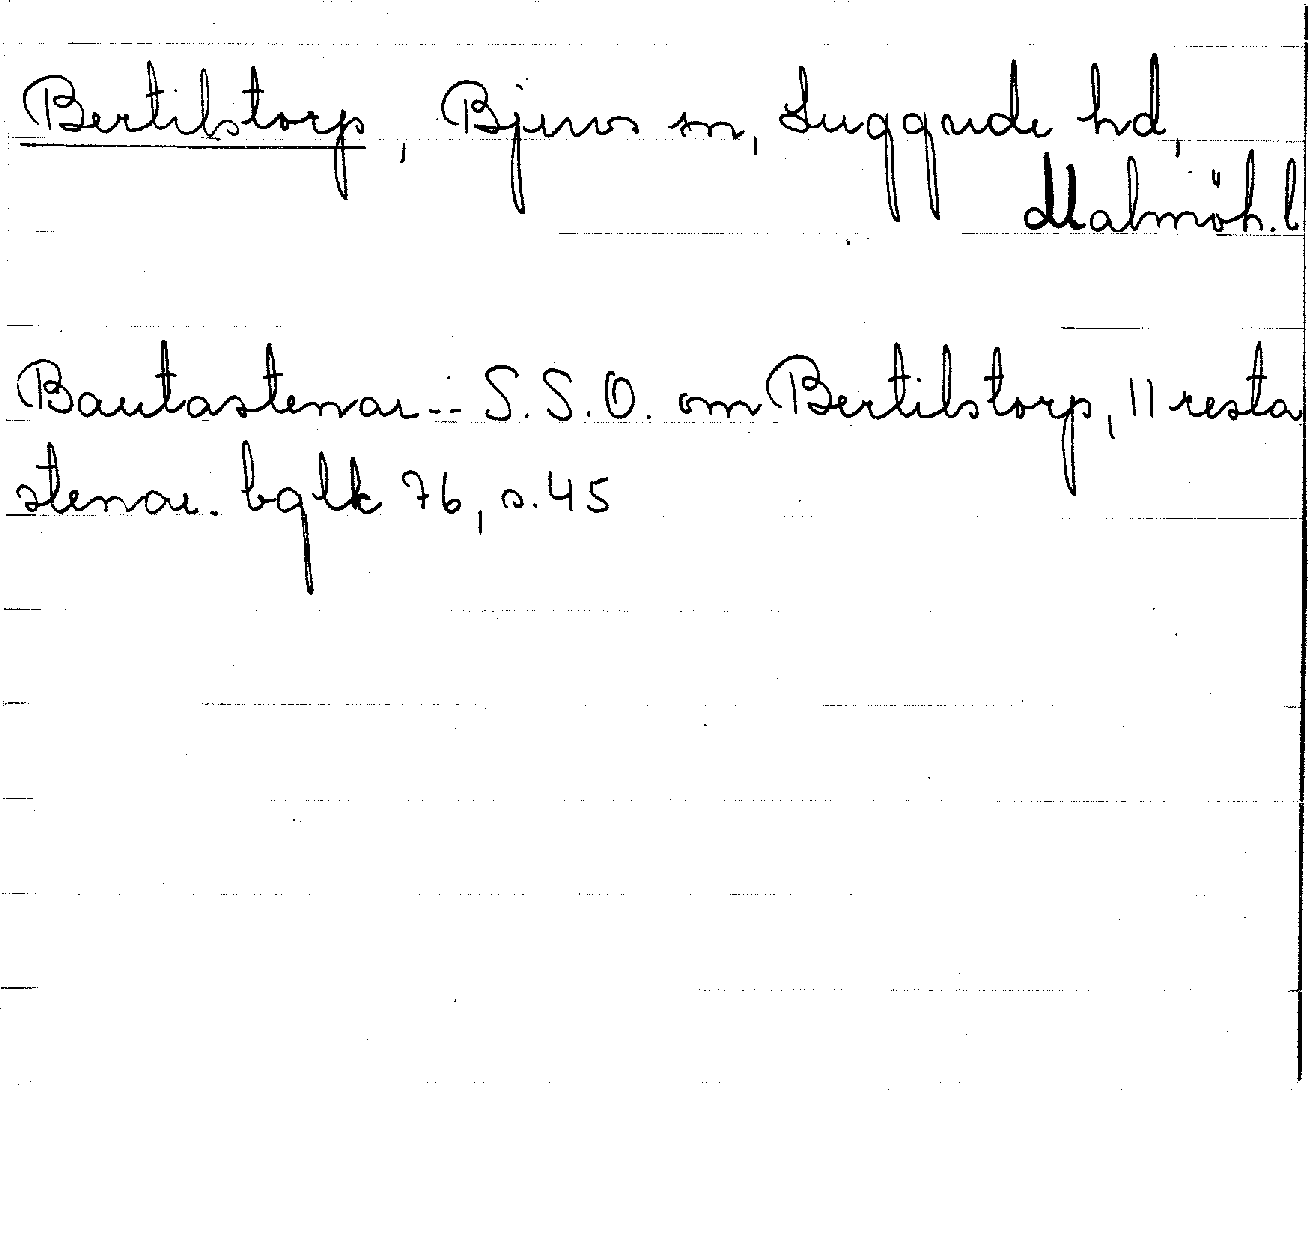 Bertilstorp, Bjuvs sn, Luggude hd,
Malmöh. l
Bautastenar -- S.S.O. om Bertilstorp, 11 resta
stenar. bglk 76, s. 45